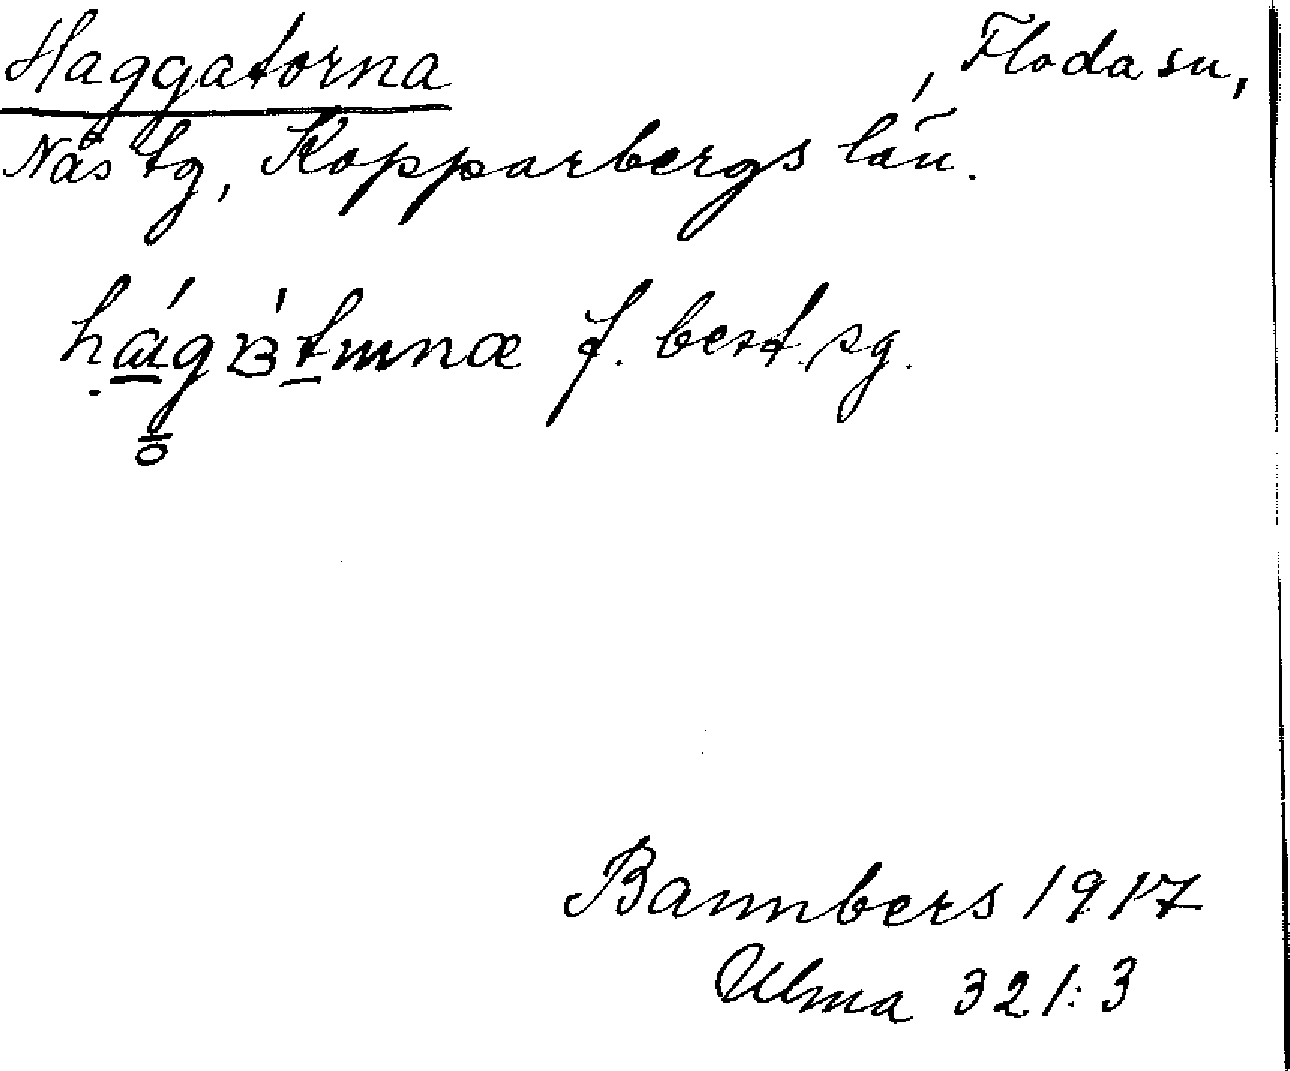 Haggatorna , Floda sn,
Nås tg, Kopparbergs län.
f. best. sg.
Bannbers 1917
Ulma 321:3